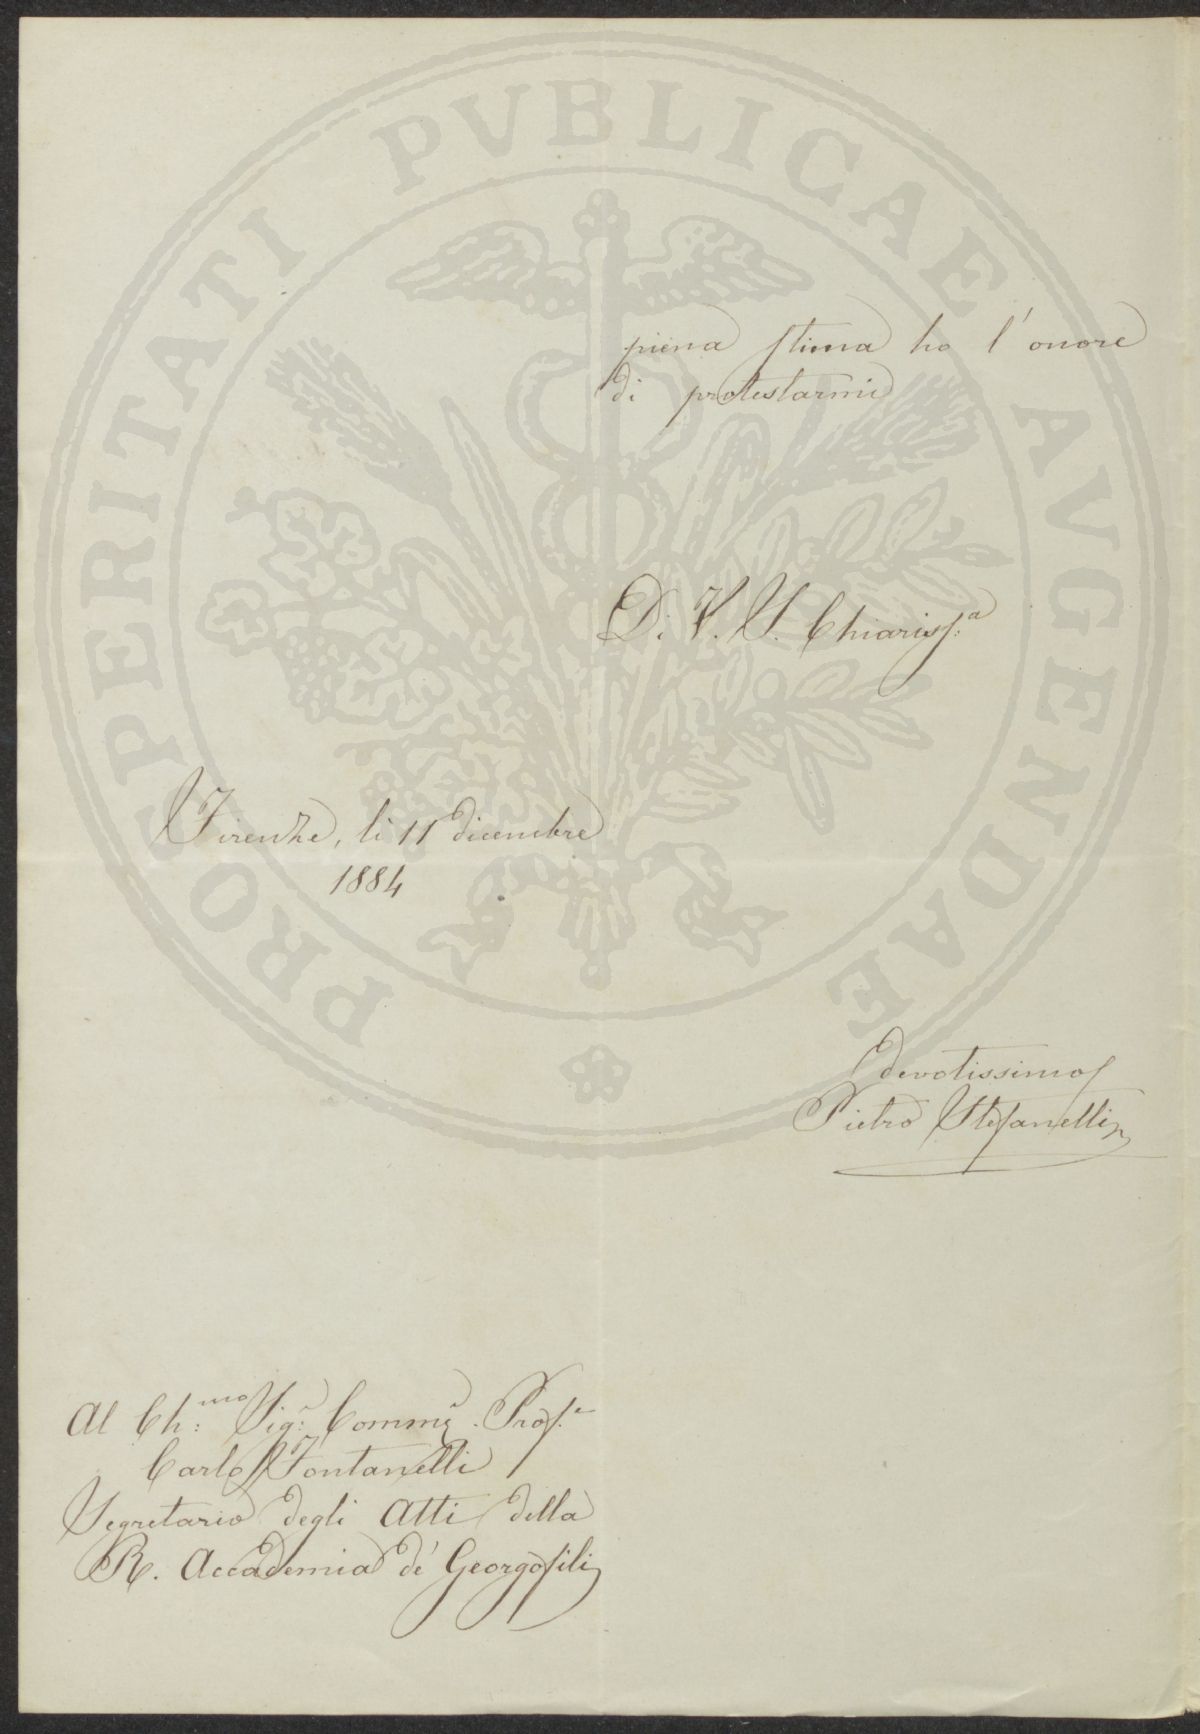 PROSPERITATI PVBLICAE AVGENDAE
piena stima ho l'onore
di protestarmi
Di V. S. Chiariss:a
Firenze, li 11 dicembre
1884
devotissimo
Pietro Stefanelli
Al Ch:mo Sig:r Comm:e Prof.e
Carlo Fontanelli
Segretario degli Atti della
R. Accademia de' Georgofili